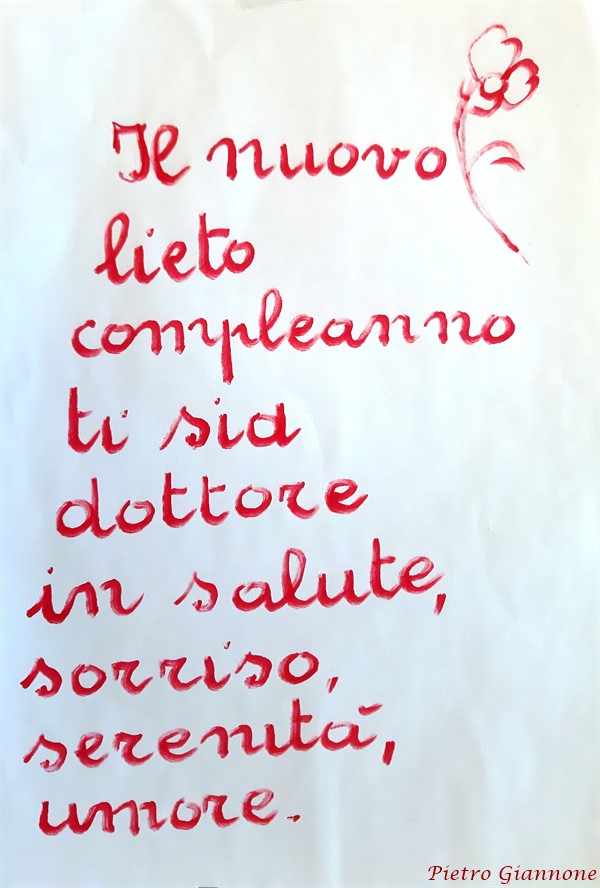 Il nuovo
lieto
compleanno
ti sia
dottore
in salute,
sorriso,
serenità,
umore.
Pietro Giannone